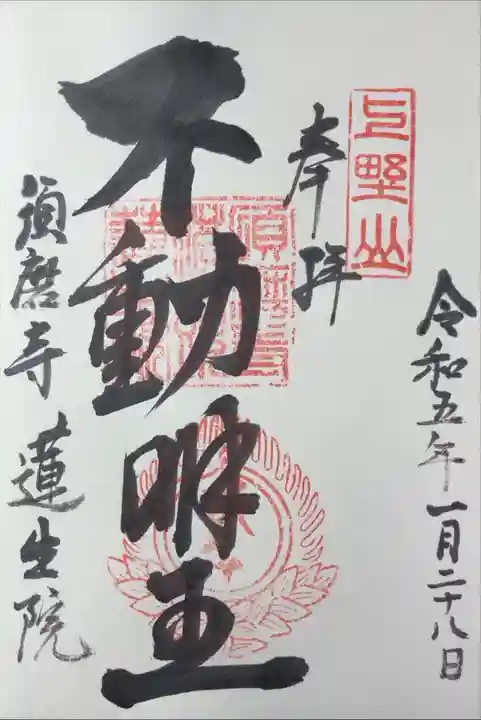 令和五年一月二十八日
上野山
奉拝
不動明王
須磨寺蓮生院